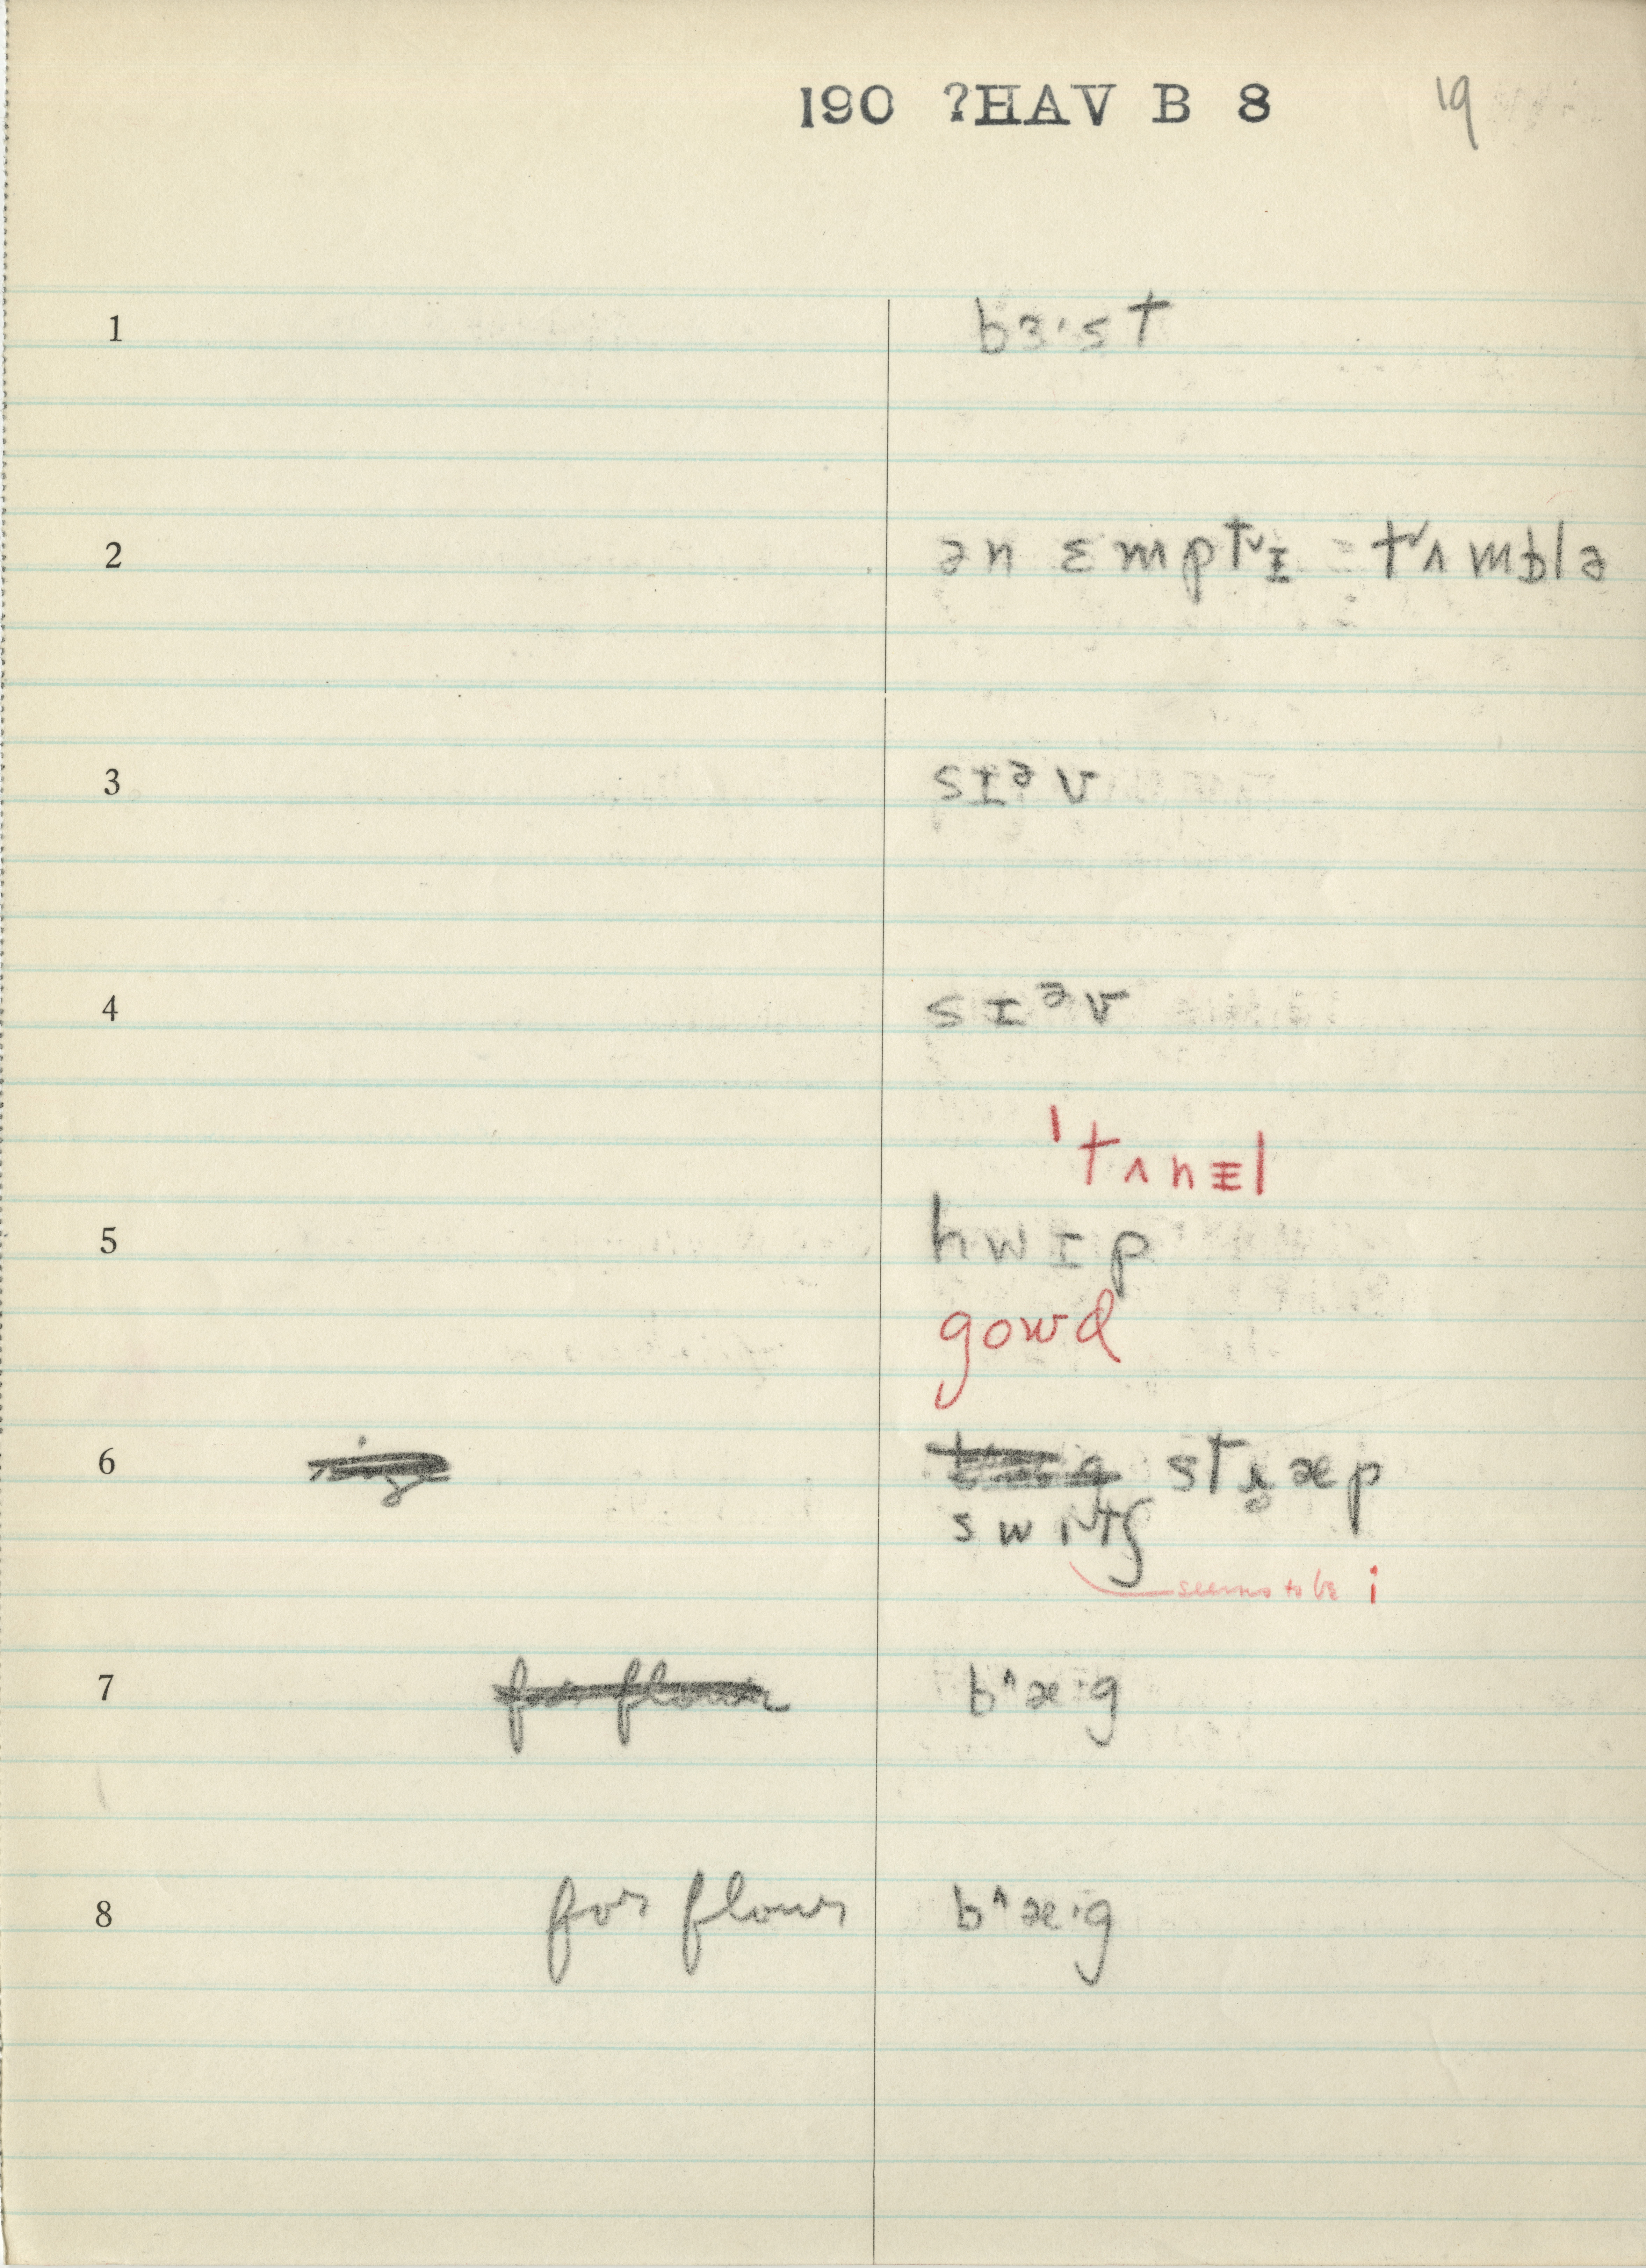 190 ?HAV B 8 19
1 bɜ·st
2 ən ɛmptˬɪ = tˬʌmblə
3 sɪᵊv
4 sɪᵊv
ˈtʌnɪl
5 hwɪp
gowd
6 stræp
swɪtʃ
seems to be i
7 for flour b^æ·g
8 for flour b^æ·g